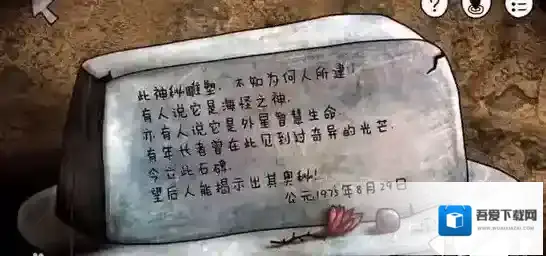 此神秘雕塑，不知为何人所建！
有人说它是海怪之神.
亦有人说它是外星智慧生命.
有年长者曾在此见到过奇异的光芒.
今立此石碑.
望后人能揭示出其奥秘！
公元1975年8月29日
吾爱下载网
www.52xiazaiwang.com